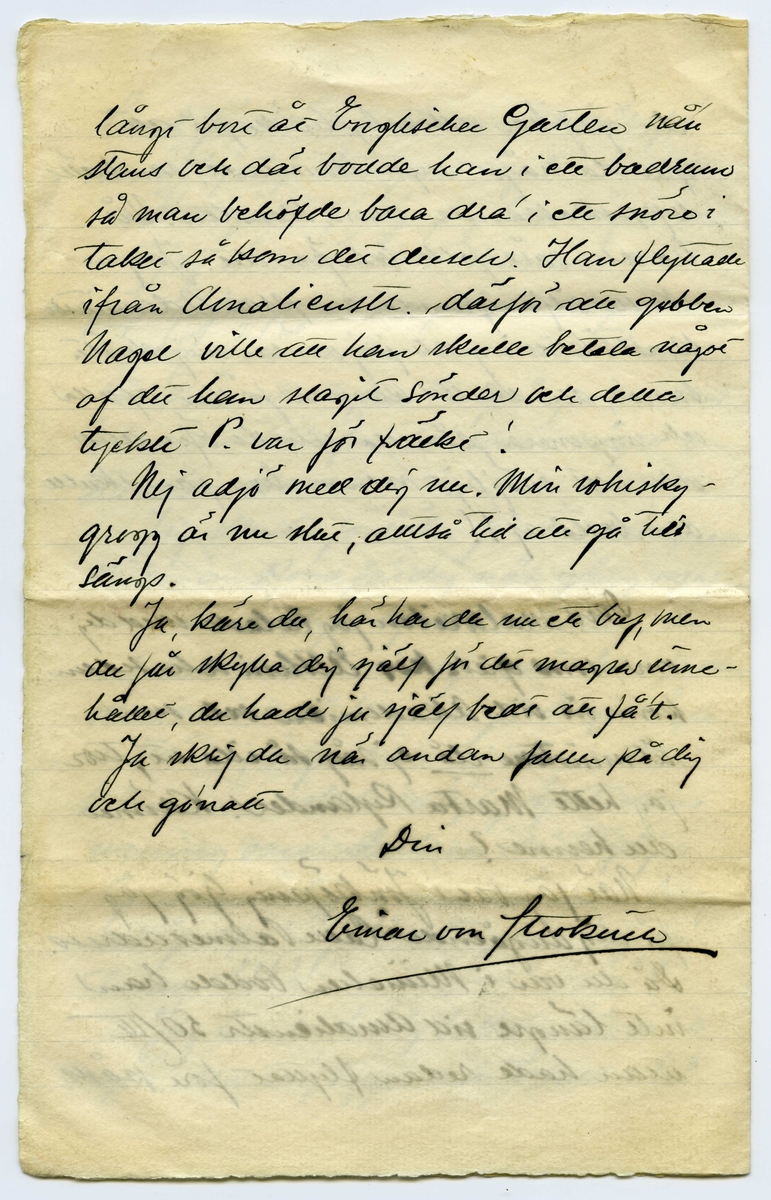 långt bort åt Englischer Garten nån
stans och där bodde han i ett badrum
så man behöfde bara dra i ett snöre i
taket så kom det dusch. Han flyttade
ifrån Amalienstr. därför att gubben
Nagel ville att han skulle betala något
af det han slagit sönder och detta
tyckte P. var för fräckt!
Nej adjö med dig nu. Min whisky-
grogg är nu slut, alltså tid att gå till
sängs.
Ja, käre du, här har du nu ett bref, men
du får skylla dig själf för det magra inne-
hållet, du hade ju själf bedt att få't.
Ja skrif du när andan faller på dig
och go'natt
Din
Einar von Strokirch